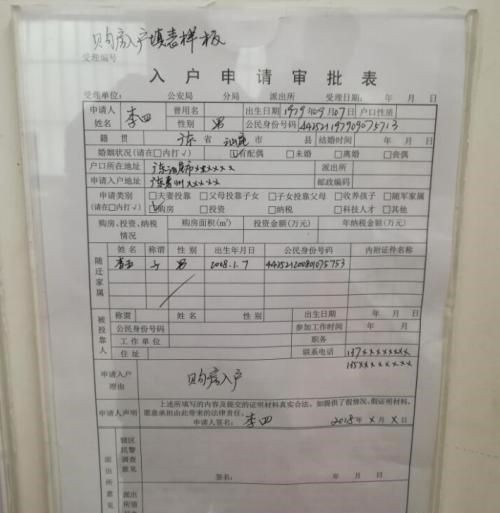 购房入户填表样板
受理编号
入户申请审批表
受理单位： 公安局 分局 派出所 受理日期： 年 月 日
申请人姓名 李四 曾用名 出生日期 1979年09月07日 户口性质
性别 男 公民身份号码 441521197909075713
籍贯 广东省 汕尾市 县 结婚时间 年 月 日
婚姻状况(请在□内打√) ☑有配偶 □未婚 □离婚 □丧偶
户口所在地址 广东汕尾市xxxxxx 派出所
申请入户地址 广东惠州xxxxx 邮政编码
申请类别 □夫妻投靠 □父母投靠子女 □子女投靠父母 □收养孩子 □随军家属
(请在□内打√) ☑购房 □投资 □纳税 □科技人才 □其他
购房、投资、纳税情况 购房面积(m²) 投资金额(万元) 年纳税金额(万元)
随迁家属 姓名 称谓 性别 出生年月日 公民身份号码 内附证件名称
子 男 2008.1.7 441521200801075753
被投靠人 称谓 姓名 性别 出生日期 年 月 日
公民身份号码 参加工作时间 年 月
工作单位 职务
住址 联系电话 137xxxxxxxx
135xxxxxxxx
申请入户理由 购房入户
申请人声明 上述所填写的内容及提交的证明材料真实合法，如提供了假情况、假证明材料，
愿意承担由此带来的法律责任。
申请人签名： 李四 2018年x月x日
派出所意见 辖区民警调查意见
签名： 年 月 日
派出所